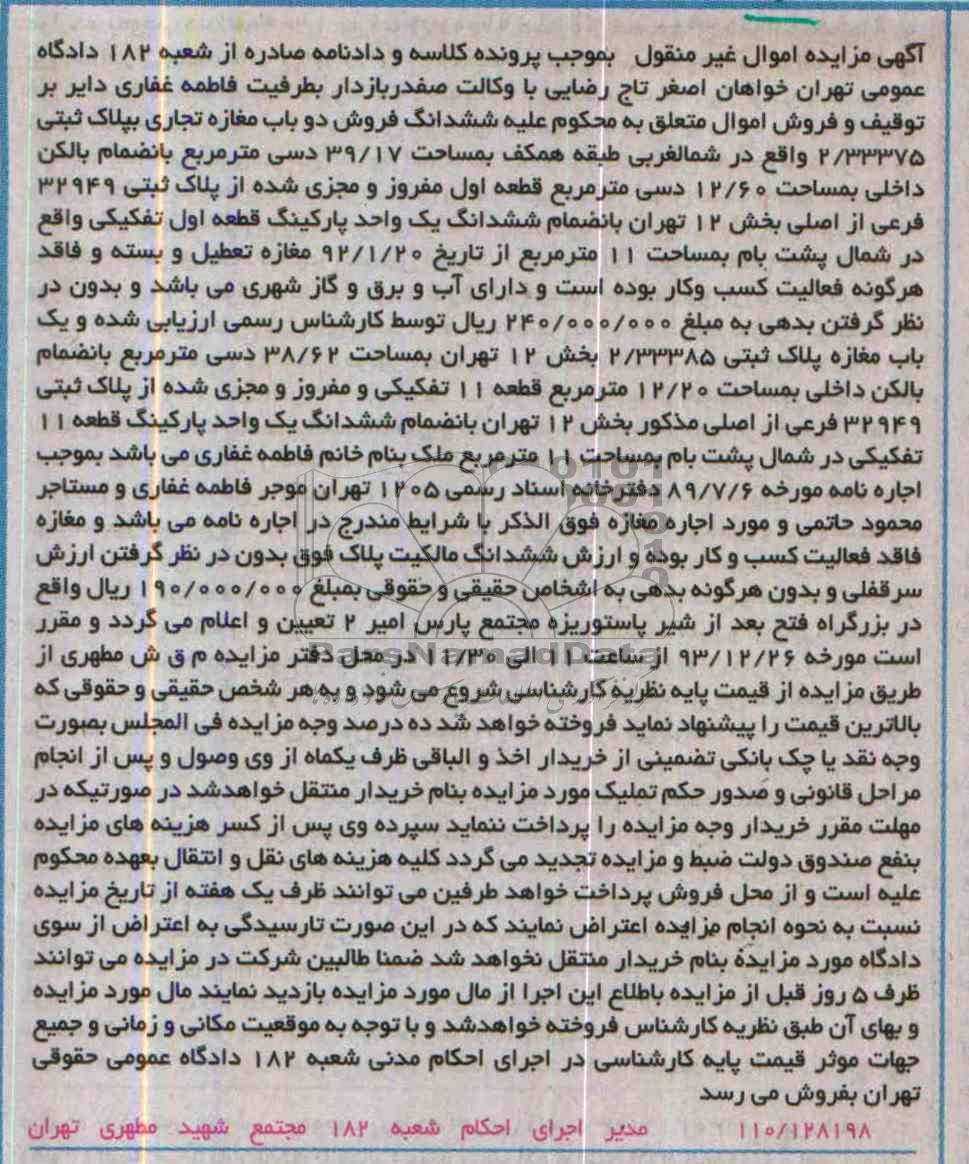 آگهی مزایده اموال غیر منقول بموجب پرونده کلاسه و دادنامه صادره از شعبه ۱۸۲ دادگاه
عمومی تهران خواهان اصغر تاج رضایی با وکالت صفدربازدار بطرفیت فاطمه غفاری دایر بر
توقیف و فروش اموال متعلق به محکوم علیه ششدانگ فروش دو باب مغازه تجاری بپلاک ثبتی
۲/۳۳۳۷۵ واقع در شمالغربی طبقه همکف بمساحت ۳۹/۱۷ دسی مترمربع بانضمام بالکن
داخلی بمساحت ۱۲/۶۰ دسی مترمربع قطعه اول مفروز و مجزی شده از پلاک ثبتی ۳۲۹۴۹
فرعی از اصلی بخش ۱۲ تهران بانضمام ششدانگ یک واحد پارکینگ قطعه اول تفکیکی واقع
در شمال پشت بام بمساحت ۱۱ مترمربع از تاریخ ۹۲/۱/۲۰ مغازه تعطیل و بسته و فاقد
هرگونه فعالیت کسب وکار بوده است و دارای آب و برق و گاز شهری می باشد و بدون در
نظر گرفتن بدهی به مبلغ ۲۴۰/۰۰۰/۰۰۰ ریال توسط کارشناس رسمی ارزیابی شده و یک
باب مغازه پلاک ثبتی ۲/۳۳۳۸۵ بخش ۱۲ تهران بمساحت ۳۸/۶۲ دسی مترمربع بانضمام
بالکن داخلی بمساحت ۱۲/۲۰ مترمربع قطعه ۱۱ تفکیکی و مفروز و مجزی شده از پلاک ثبتی
۳۲۹۴۹ فرعی از اصلی مذکور بخش ۱۲ تهران بانضمام ششدانگ یک واحد پارکینگ قطعه ۱۱
تفکیکی در شمال پشت بام بمساحت ۱۱ مترمربع ملک بنام خانم فاطمه غفاری می باشد بموجب
اجاره نامه مورخه ۸۹/۷/۶ دفترخانه اسناد رسمی ۱۲۰۵ تهران موجر فاطمه غفاری و مستاجر
محمود حاتمی و مورد اجاره مغازه فوق الذکر با شرایط مندرج در اجاره نامه می باشد و مغازه
فاقد فعالیت کسب و کار بوده و ارزش ششدانگ مالکیت پلاک فوق بدون در نظر گرفتن ارزش
سرقفلی و بدون هرگونه بدهی به اشخاص حقیقی و حقوقی بمبلغ ۱۹۰/۰۰۰/۰۰۰ ریال واقع
در بزرگراه فتح بعد از شیر پاستوریزه مجتمع پارس امیر ۲ تعیین و اعلام می گردد و مقرر
است مورخه ۹۳/۱۲/۲۶ از ساعت ۱۱ الی ۱۱/۳۰ در محل دفتر مزایده م ق ش مطهری از
طریق مزایده از قیمت پایه نظریه کارشناسی شروع می شود و به هر شخص حقیقی و حقوقی که
بالاترین قیمت را پیشنهاد نماید فروخته خواهد شد ده درصد وجه مزایده فی المجلس بصورت
وجه نقد یا چک بانکی تضمینی از خریدار اخذ و الباقی ظرف یکماه از وی وصول و پس از انجام
مراحل قانونی و صدور حکم تملیک مورد مزایده بنام خریدار منتقل خواهدشد در صورتیکه در
مهلت مقرر خریدار وجه مزایده را پرداخت ننماید سپرده وی پس از کسر هزینه های مزایده
بنفع صندوق دولت ضبط و مزایده تجدید می گردد کلیه هزینه های نقل و انتقال بعهده محکوم
علیه است و از محل فروش پرداخت خواهد طرفین می توانند ظرف یک هفته از تاریخ مزایده
نسبت به نحوه انجام مزایده اعتراض نمایند که در این صورت تارسیدگی به اعتراض از سوی
دادگاه مورد مزایده بنام خریدار منتقل نخواهد شد ضمنا طالبین شرکت در مزایده می توانند
ظرف ۵ روز قبل از مزایده باطلاع این اجرا از مال مورد مزایده بازدید نمایند مال مورد مزایده
و بهای آن طبق نظریه کارشناس فروخته خواهدشد و با توجه به موقعیت مکانی و زمانی و جمیع
جهات موثر قیمت پایه کارشناسی در اجرای احکام مدنی شعبه ۱۸۲ دادگاه عمومی حقوقی
تهران بفروش می رسد
۱۱۰/۱۲۸۱۹۸ مدیر اجرای احکام شعبه ۱۸۲ مجتمع شهید مطهری تهران
ParsNamadData